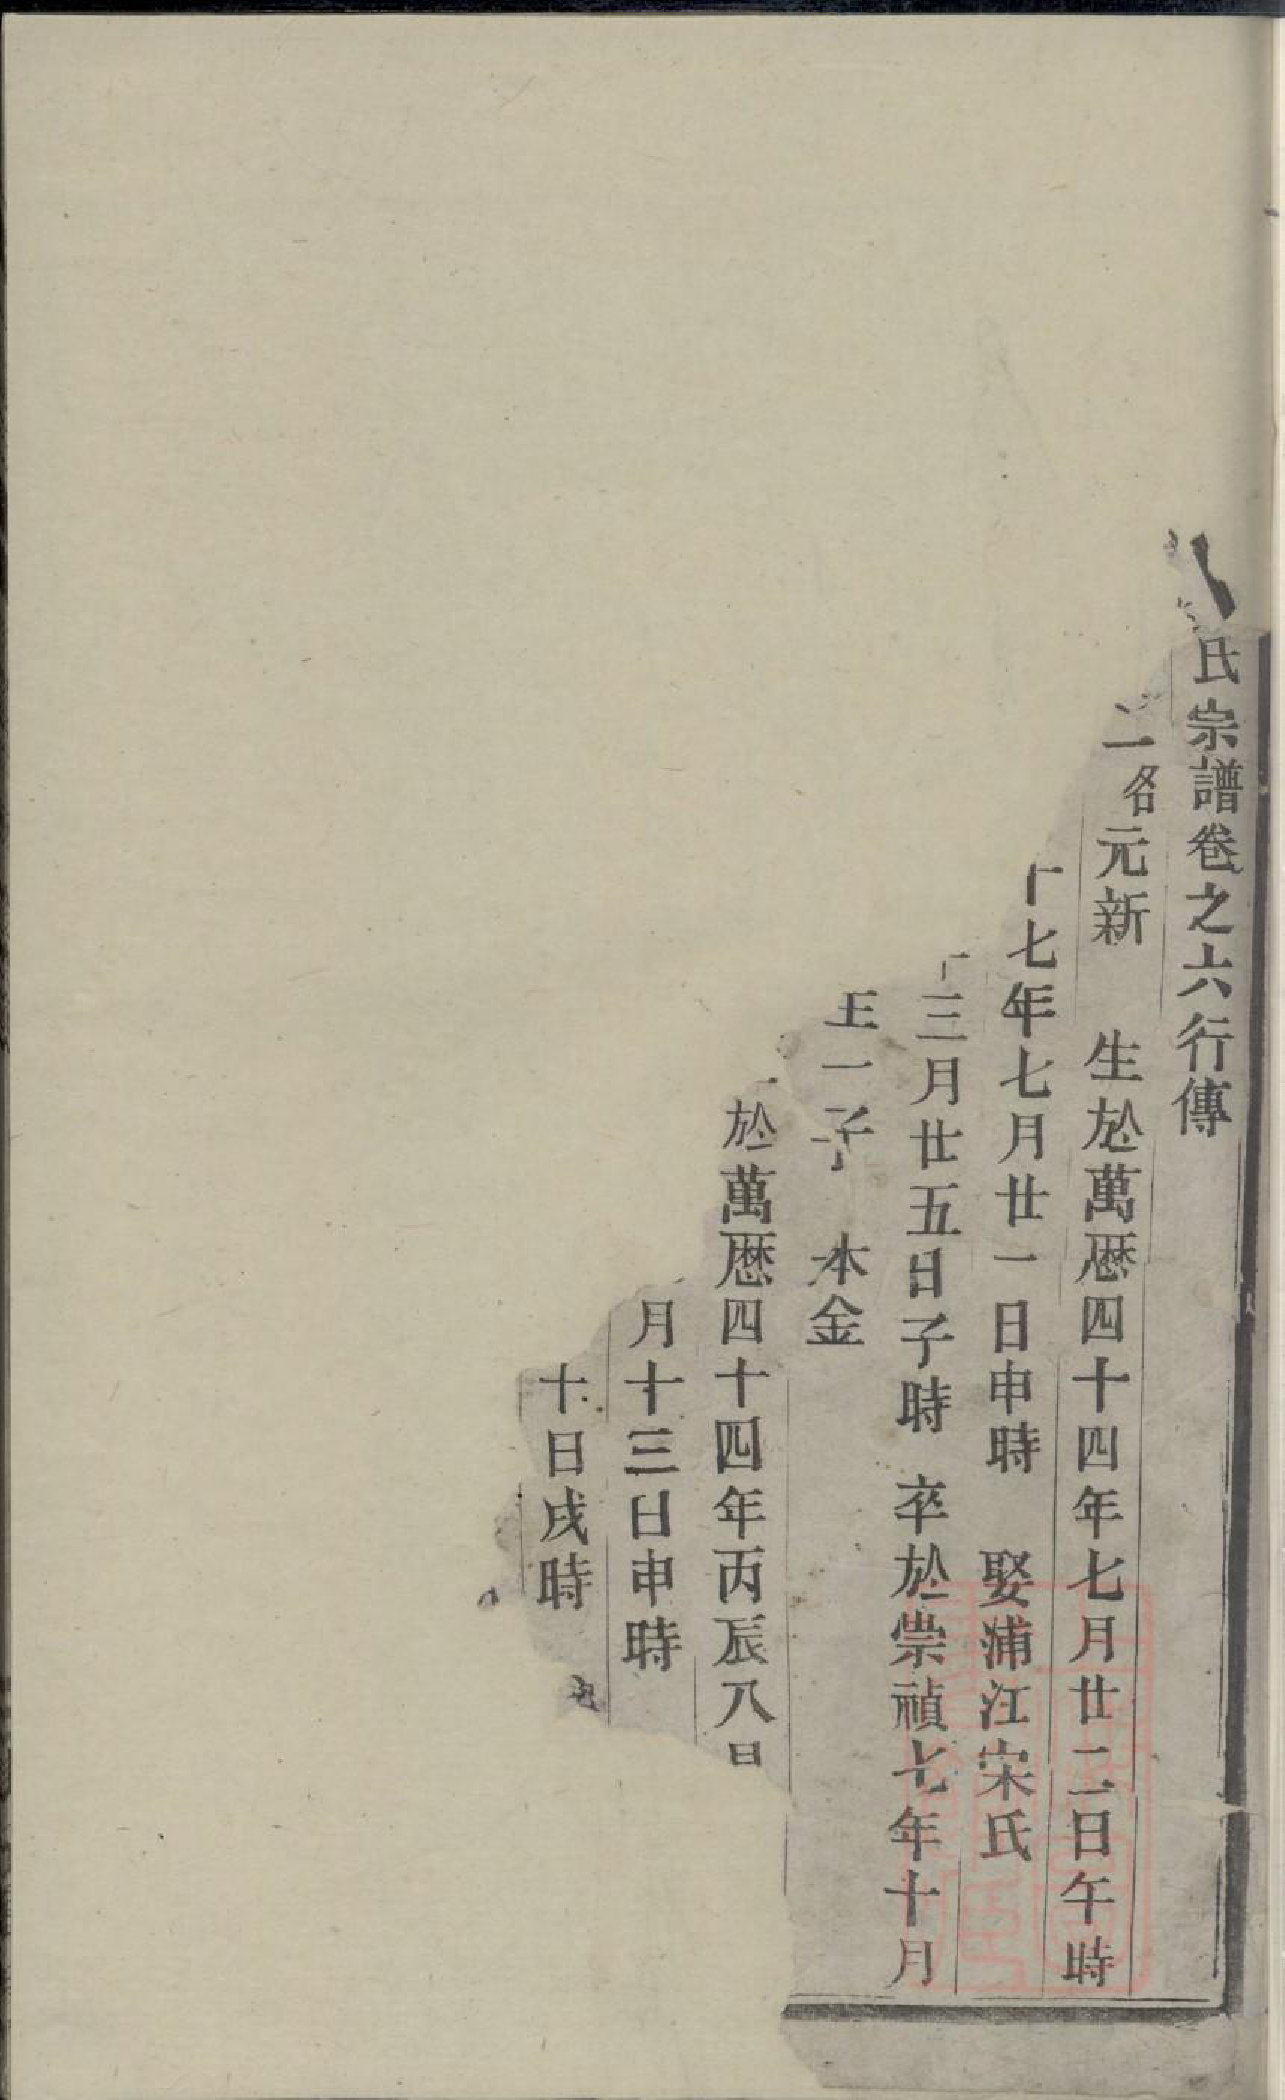 氏宗譜卷之六行傳
二名元新 生於萬曆四十四年七月廿二日午時
七年七月廿一日申時 娶浦江宋氏
三月廿五日子時 卒於崇禎七年十月
一子 本金
於萬曆四十四年丙辰八月
月十三日申時
十日戌時